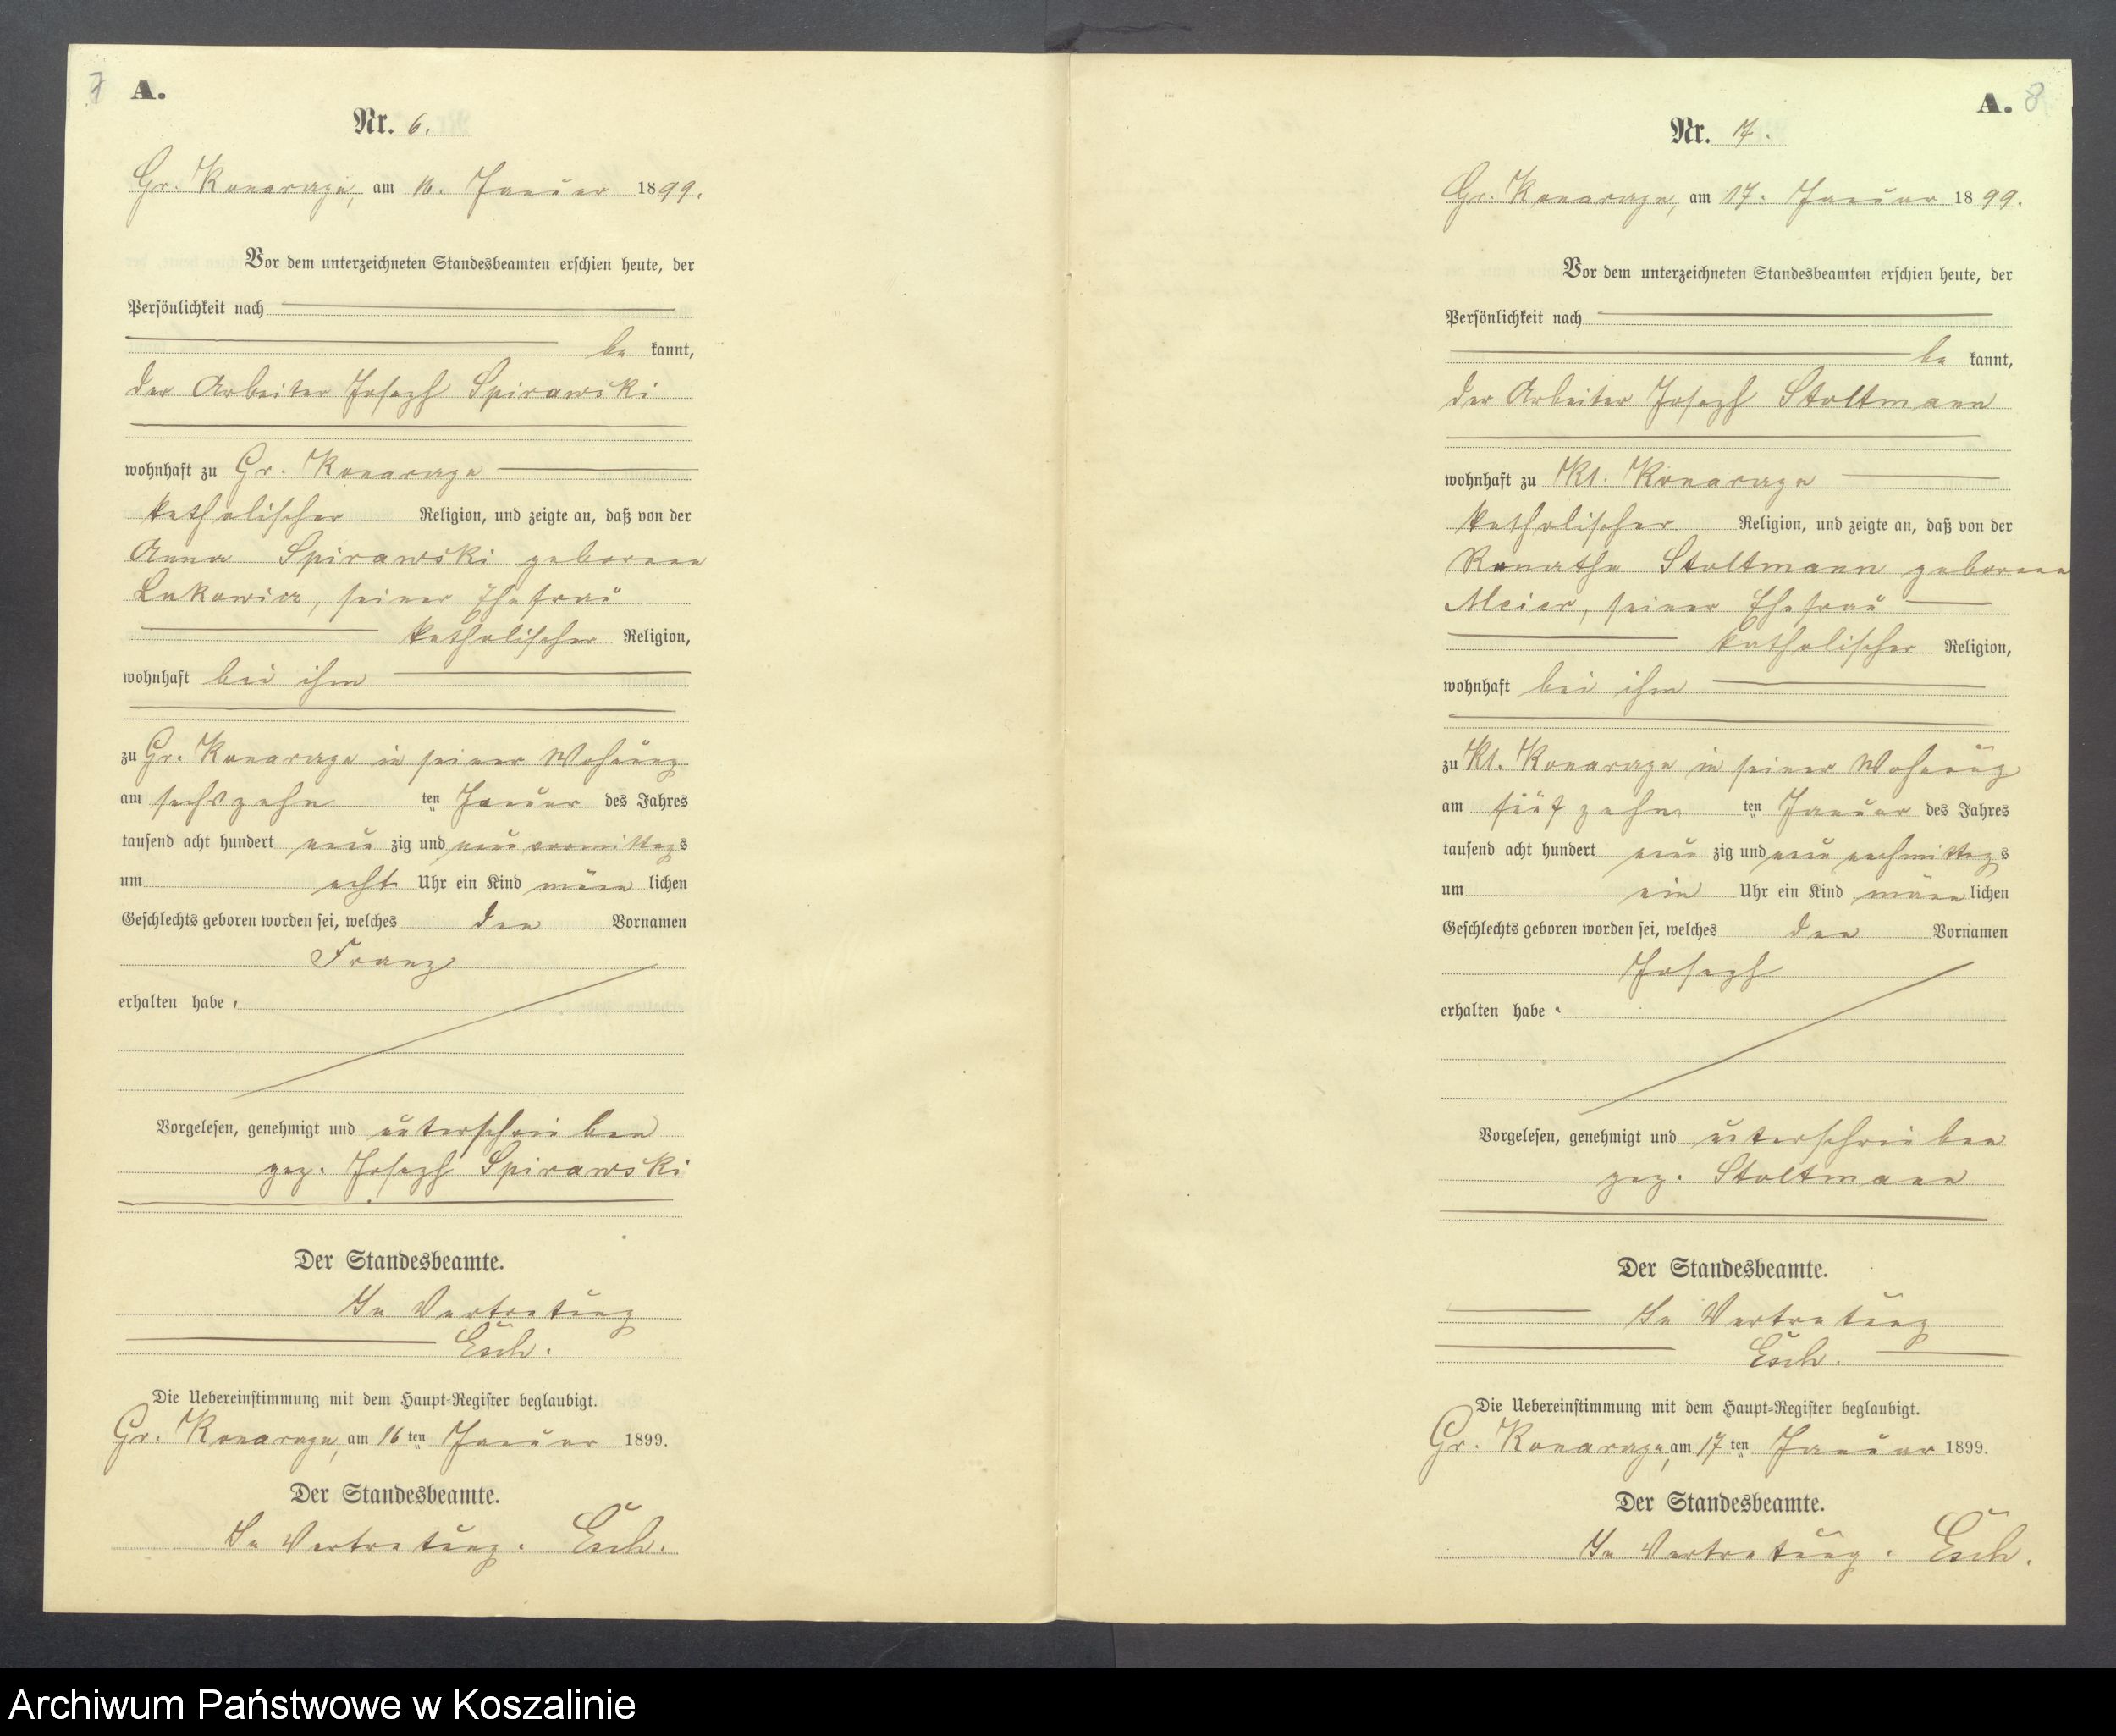 7
A.
Nr. 6.
Gr. Konarzyn, am 16. Januar 1899.
Vor dem unterzeichneten Standesbeamten erschien heute, der
Persönlichkeit nach
be kannt,
der Arbeiter Joseph Spirawski
wohnhaft zu Gr. Konarzyn
katholischer Religion, und zeigte an, daß von der
Anna Spirawski geborenen
Lukowicz, seiner Ehefrau
katholischer Religion,
wohnhaft bei ihm
zu Gr. Konarzyn in seiner Wohnung
am sechszehn ten Januar des Jahres
tausend acht hundert neun zig und neun vormittags
um acht Uhr ein Kind männ lichen
Geschlechts geboren worden sei, welches den Vornamen
Franz
erhalten habe.
Vorgelesen, genehmigt und unterschrieben
gez. Joseph Spirawski
Der Standesbeamte.
In Vertretung
Esch.
Die Uebereinstimmung mit dem Haupt-Register beglaubigt.
Gr. Konarzyn, am 16 ten Januar 1899.
Der Standesbeamte.
In Vertretung. Esch.
A. 8
Nr. 7.
Gr. Konarzyn, am 17. Januar 1899.
Vor dem unterzeichneten Standesbeamten erschien heute, der
Persönlichkeit nach
be kannt,
der Arbeiter Joseph Stoltmann
wohnhaft zu Kl. Konarzyn
katholischer Religion, und zeigte an, daß von der
Renathe Stoltmann geborenen
Meier, seiner Ehefrau
katholischer Religion,
wohnhaft bei ihm
zu Kl. Konarzyn in seiner Wohnung
am fünfzehn ten Januar des Jahres
tausend acht hundert neun zig und neun nachmittags
um ein Uhr ein Kind männ lichen
Geschlechts geboren worden sei, welches den Vornamen
Joseph
erhalten habe.
Vorgelesen, genehmigt und unterschrieben
gez. Stoltmann
Der Standesbeamte.
In Vertretung
Esch.
Die Uebereinstimmung mit dem Haupt-Register beglaubigt.
Gr. Konarzyn, am 17 ten Januar 1899.
Der Standesbeamte.
In Vertretung. Esch.
Archiwum Państwowe w Koszalinie